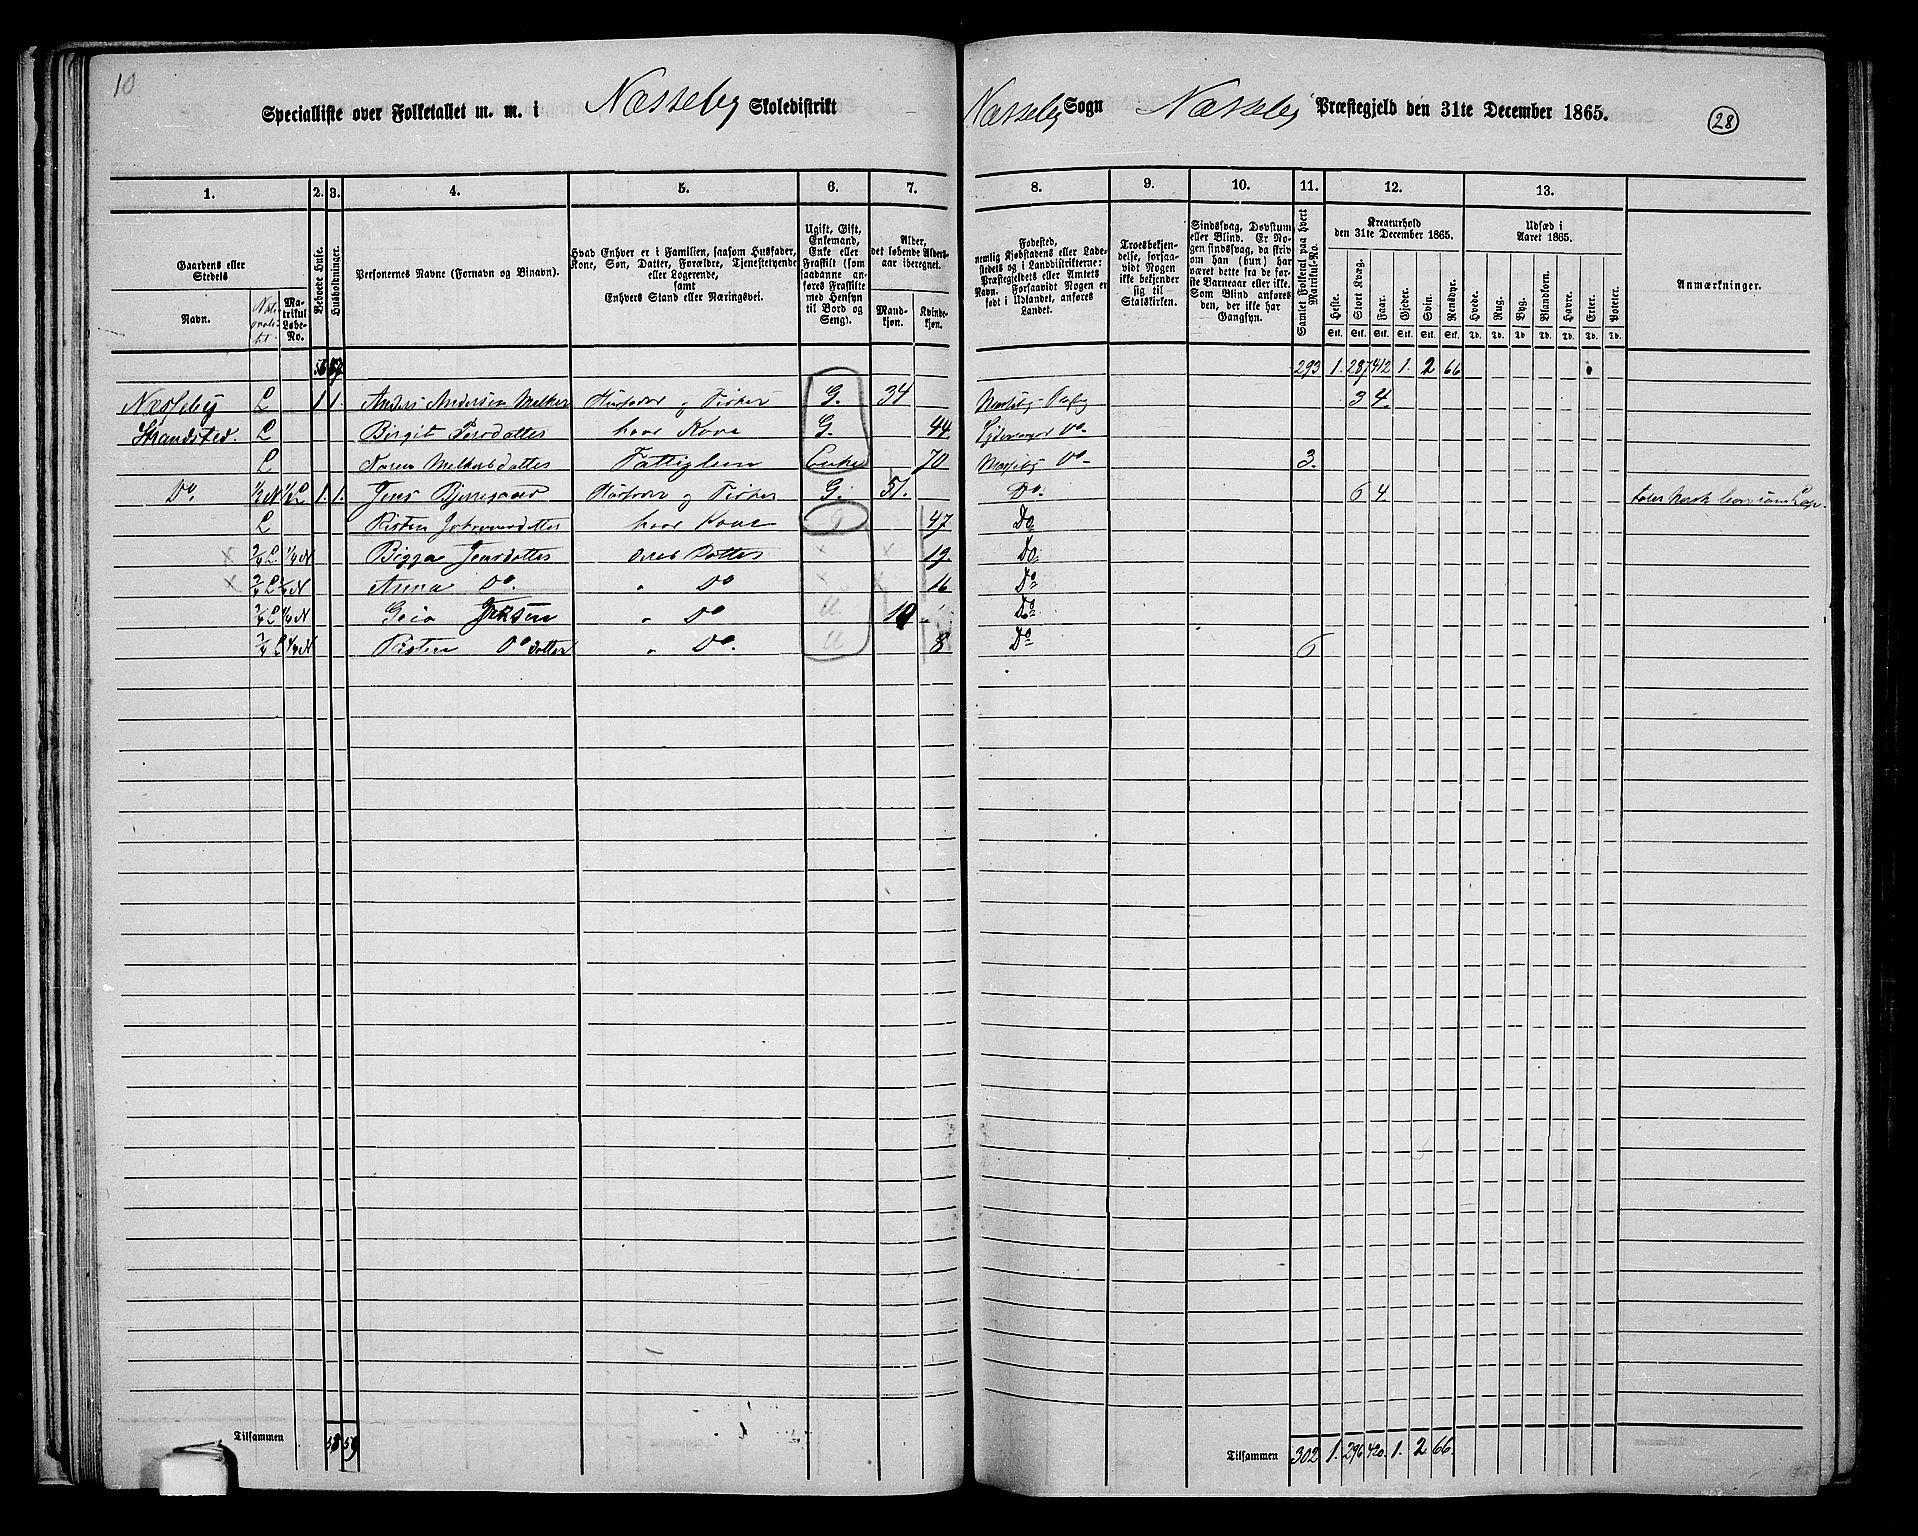 10
Specialliste over Folketallet m. m. i Næsseby Skoledistrikt Næsseby Sogn Næsseby Præstegjeld den 31te December 1865. 28
1. 2. 3. 4. 5. 6. 7. 8. 9. 10. 11. 12. 13.
Gaardens eller Stedets
Navn.
Matrikul Løbe-No.
Beboede Huse.
Husholdninger.
Personernes Navne (Fornavn og Binavn).
Hvad Enhver er i Familien, saasom Husfader, Kone, Søn, Datter, Forældre, Tjenestetyende eller Logerende, samt Enhvers Stand eller Næringsvei.
Ugift, Gift, Enkemand, Enke eller Fraskilt (som saadanne anføres Fraskilte med Hensyn til Bord og Seng).
Alder, det løbende Aldersaar iberegnet.
Mandkjøn.
Kvindekjøn.
Fødested, nemlig Kjøbstadens eller Ladestedets og i Landdistrikterne: Præstegjeldets eller Amtets Navn. Forsaavidt Nogen er født i Udlandet, anføres Landet.
Troesbekjendelse, forsaavidt Nogen ikke bekjender sig til Statskirken.
Sindssvag, Døvstum eller Blind. Er Nogen sindssvag, da skrives om han (hun) har været dette fra de første Barneaar eller ikke. Som Blind anføres den, der ikke har Gangsyn.
Samlet Folketal paa hvert Matrikul-No.
Kreaturhold den 31te December 1865.
Heste. Stort Kvæg. Faar. Gjeder. Svin. Rensdyr.
Stk. Stk. Stk. Stk. Stk. Stk.
Udsæd i Aaret 1865.
Hvede. Rug. Byg. Blandkorn. Havre. Erter. Poteter.
Td. Td. Td. Td. Td. Td. Td.
Anmærkninger.
56 57 293 1. 287 412 1. 2 66
Næsseby L 1 1. Anders Andersen Melker Husfader og Fisker G. 34 3 4.
Strandsted. L Birgit Persdatter hans Kone G. 44. Do.
L Karen Melkersdatter Enke 70 Do 3.
Do. ½N ½L 1. 1. Jens Husfader og Fisker G. 51. Do. 6 4
L Kirsten hans Kone G 47 Do
Bigga Jensdatter deres Datter 19 Do
Anna Do. " Do 16 Do
Jensen " Do 10 Do
Kirsten Do datter " Do. U 8 Do 6
Tilsammen 58 59
Tilsammen 302 1. 296 420. 1. 2 66.